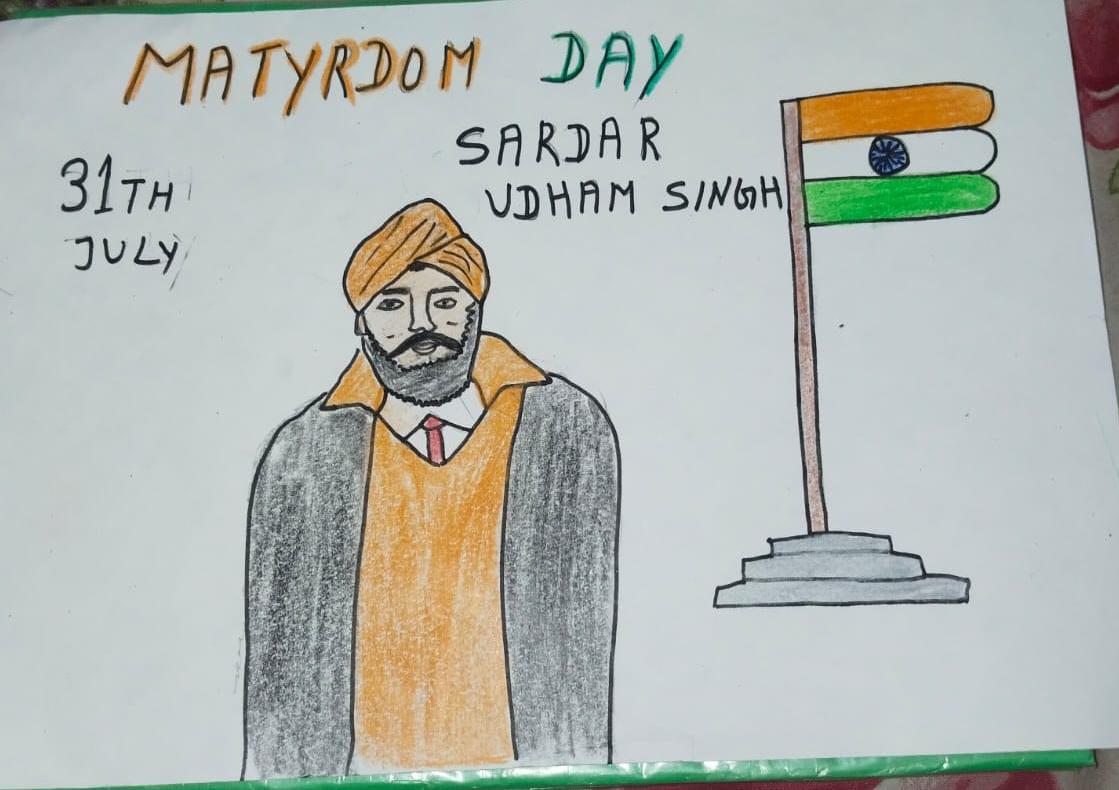 MATYRDOM DAY
SARDAR
UDHAM SINGH
31TH
JULY